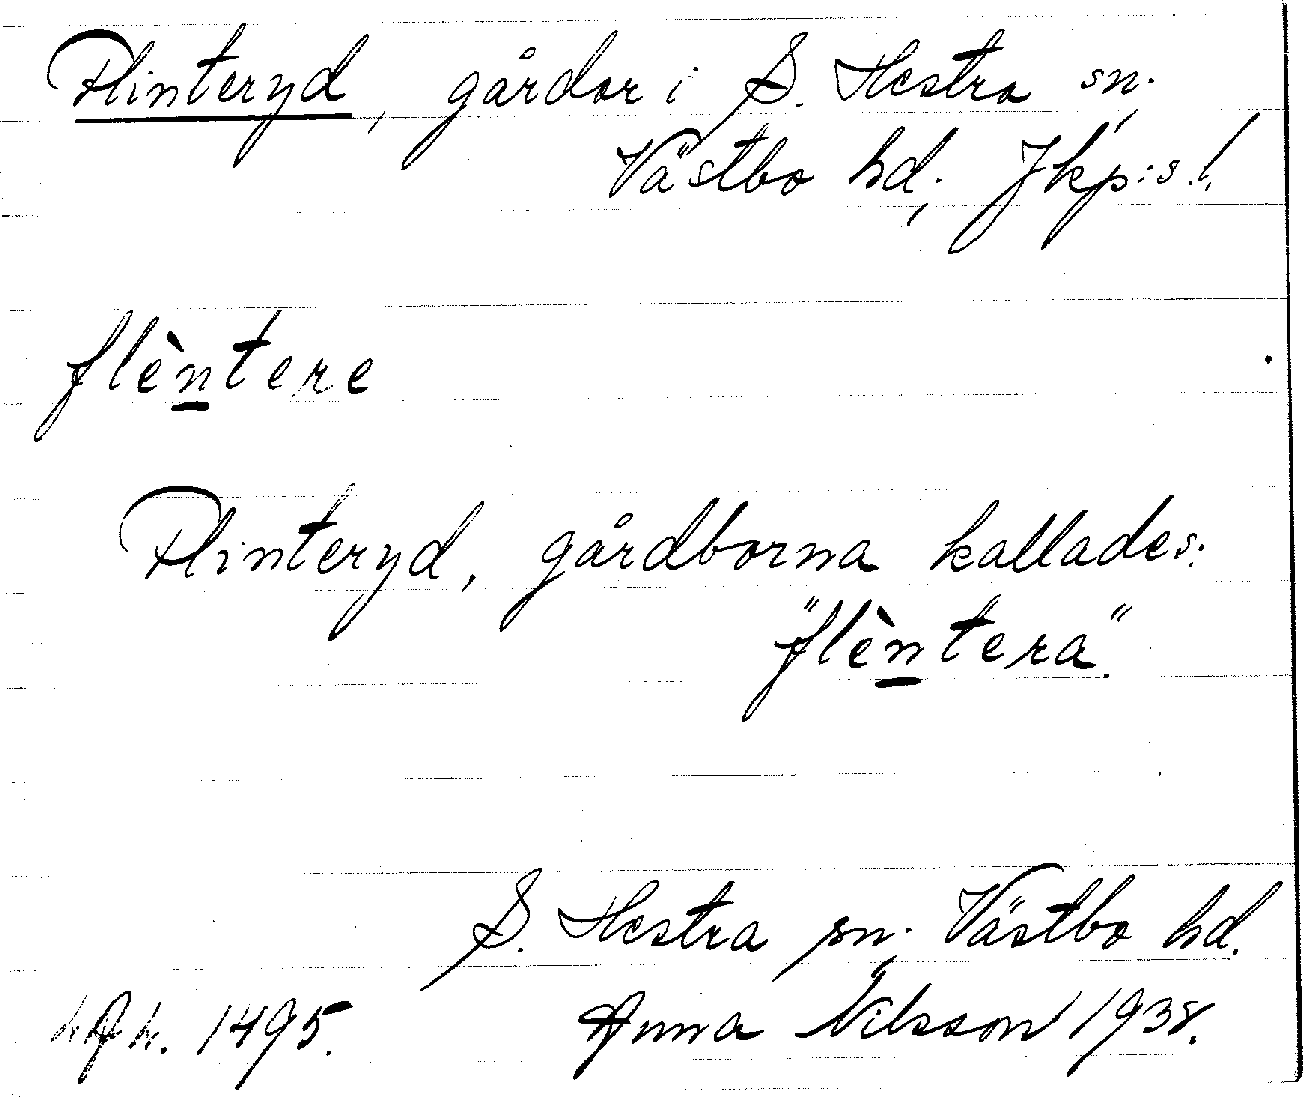 Flinteryd, gårdar i S. Hestra sn.
Västbo hd. Jkp:s l.
flèntere
Flinteryd, gårdborna kallades:
"flèntera".
S. Hestra sn. Västbo hd.
1495. Anna Nilsson 1938.